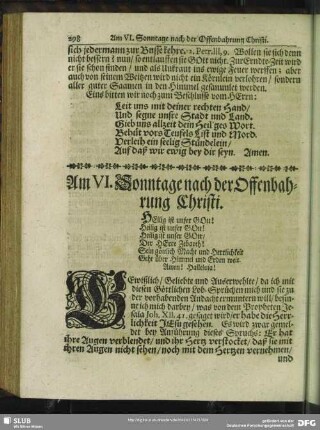 298 Am VI. Sonntage nach der Offenbahrung Christi.
sich jedermann zur Busse kehre, 2. Petr. III, 9. Wollen sie sich denn
nicht bessern / nun / so entlauffen sie GOtt nicht. Zur Erndte-Zeit wird
er sie schon finden / und als Unkraut ins ewige Feuer werffen: aber
auch von seinem Weitzen wird nicht ein Körnlein verlohren / sondern
aller guter Saamen in den Himmel gesammlet werden.
Eins bitten wir noch zum Beschlusse vom HErrn:
Leit uns mit deiner rechten Hand/
Und segne unsre Stadt und Land.
Gieb uns allzeit dein Heilges Wort.
Behüt vors Teufels List und Mord.
Verleih ein seelig Stündelein/
Auf daß wir ewig bey dir seyn. Amen.
Am VI. Sonntage nach der Offenbah-
rung Christi.
HEilig ist unser GOtt!
Heilig ist unser GOtt!
Heilig ist unser GOtt!
Der HErre Zebaoth!
Sein göttlich Macht und Herrlichkeit
Geht über Himmel und Erden weit.
Amen! Halleluja!
GEwißlich/ Geliebte und Auserwehlte/ da ich mit
diesen Göttlichen Lob-Sprüchen mich und sie zu
der vorhabenden Andacht ermuntern will/ besin-
ne ich mich darbey/ was von dem Propheten Je-
saia Joh. XII, 41. gesaget wird: er habe die Herr-
lichkeit JESu gesehen. Es wird zwar gemel-
det bey Anführung dieses Spruchs: Er hat
ihre Augen verblendet/ und ihr Hertz verstocket/ daß sie mit
ihren Augen nicht sehen/ noch mit dem Hertzen vernehmen/
und
SLUB
Wir führen Wissen.
gefördert von der
Deutschen Forschungsgemeinschaft